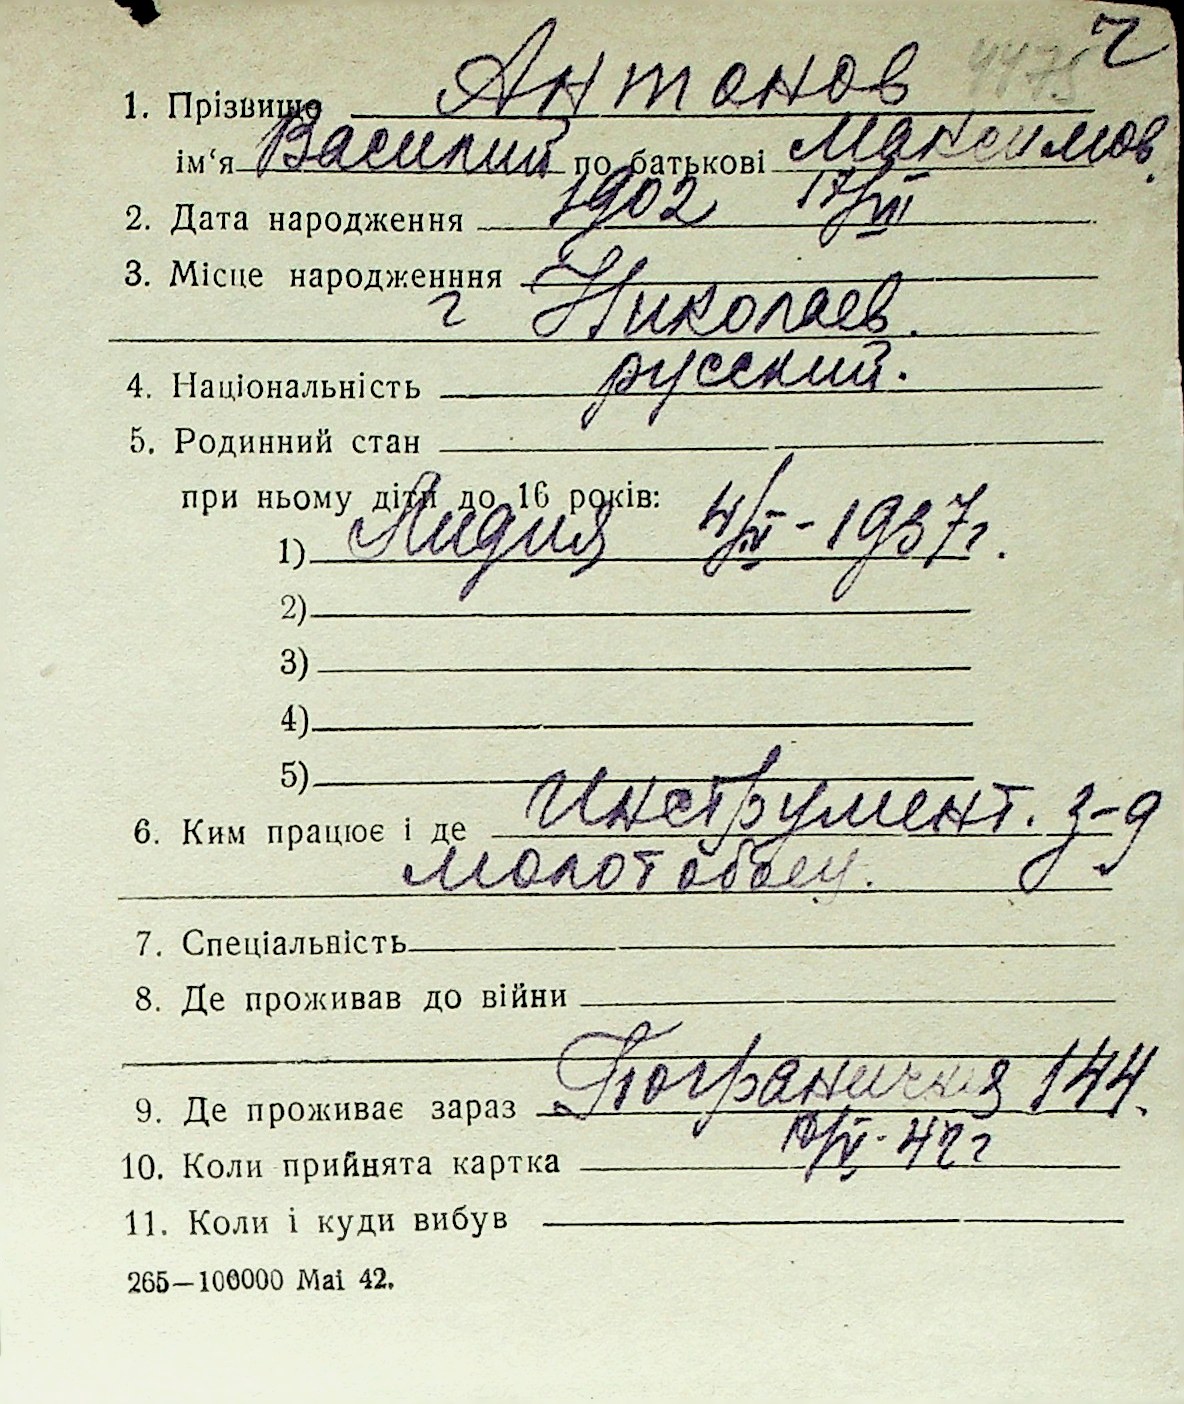 ч
4475
1. Прізвище Антонов
ім‘я Василий по батькові Максимов.
2. Дата народження 1902 17/VII
3. Місце народженння
г Николаев.
4. Національність русский.
5. Родинний стан
при ньому діти до 16 років:
1) Лидия 4/IV - 1937 г.
2)
3)
4)
5)
6. Ким працює і де Инструмент. з-д
молотобоец.
7. Спеціальність
8. Де проживав до війни
9. Де проживає зараз Пограничная 144.
10. Коли прийнята картка /V- 42 г
11. Коли і куди вибув
265—100000 Mai 42.